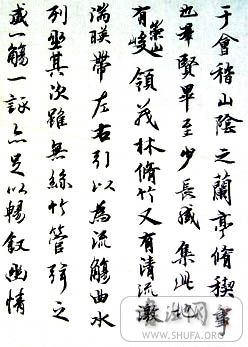 于會稽山陰之蘭亭脩稧事
也羣賢畢至少長咸集此地
有崇山峻領茂林脩竹又有清流激
湍暎帶左右引以為流觴曲水
列坐其次雖無絲竹管弦之
盛一觴一詠亦足以暢敘幽情
WWW.SHUFA.ORG